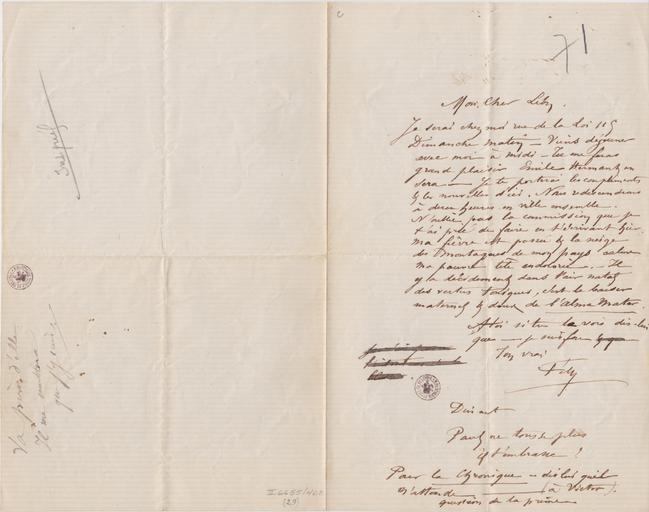 71
Mon Cher Liby.
Je serai chez moi rue de la Loi 115
Dimanche matin — Viens déjeuner
avec moi à midi — Tu me feras
grand plaisir Emile Hermant en
sera — Je te porterai les compliments
& les nouvelles d'ici. Nous redescendrons
à deux heures en ville ensemble.
N'oublie pas la commission que je
t'ai prié de faire en t'écrivant hier.
ma fièvre est passée & la neige
des Montagnes de mon pays calme
ma pauvre tête endolorie. — Il
y a décidément dans l'air natal
des vertus toniques, c'est le baiser
maternel & doux de l'Alma Mater.
A toi si tu la vois dis-lui
que — je
Ton vrai
Fély
Dinant
Pauly ne tousse plus
il t'embrasse ?
Pour la Chronique — dis lui qu'il
s'attende (à Victor).
question de la prime
Va près d'elle
Il me
que
II 6655/402
(29)